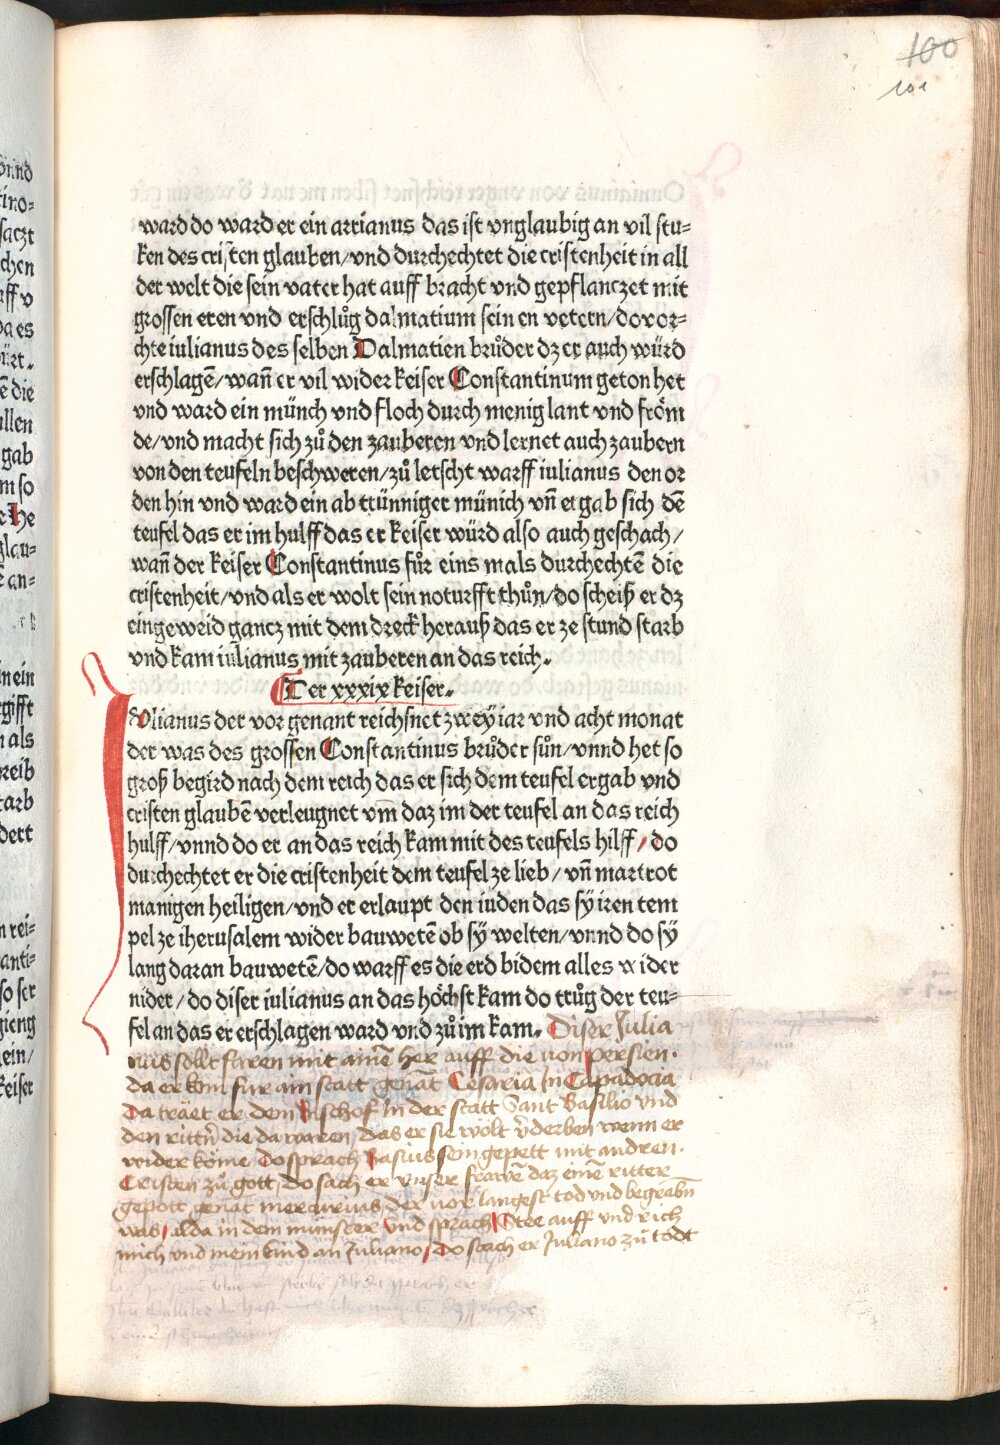 100
101
ward do ward er ein arrianus das ist vnglaubig an vil stu=
ken des cristen glauben/vnd durchechtet die cristenheit in all
der welt die sein vater hat auff bracht vnd gepflanczet mit
grossen eren vnd erschlůg dalmatium seinen vetern/do vor=
chte iulianus des selben Dalmatien brůder dz er auch würd
erschlagē/wañ er vil wider keiser Constantinum geton het
vnd ward ein münch vnd floch durch menig lant vnd fröm
de/vnd macht sich zů den zauberen vnd lernet auch zaubern
von den teufeln beschweren/zů letscht warff iulianus den or
den hin vnd ward ein ab trünniger münich vñ ergab sich dē
teufel das er im hulff das er keiser würd also auch geschach/
wañ der keiser Constantinus fůr eins mals durchechtē die
cristenheit/vnd als er wolt sein noturfft thůn/do scheiß er dz
eingeweid gancz mit dem dreck herauß das er ze stund starb
vnd kam iulianus mit zauberen an das reich.
Der xxxix keiser.
Iulianus der vor genant reichsnet zweÿ iar vnd acht monat
der was des grossen Constantinus brůder sůn/vnnd het so
groß begird nach dem reich das er sich dem teufel ergab vnd
cristen glaubē verleugnet vm̃ daz im der teufel an das reich
hulff/vnnd do er an das reich kam mit des teufels hilff/do
durchechtet er die cristenheit dem teufel ze lieb/vñ martrot
manigen heiligen/vnd er erlaupt den iuden das sÿ iren tem
pel ze iherusalem wider bauwetē ob sÿ welten/vnnd do sÿ
lang daran bauwetē/do warff es die erd bidem alles wider
nider/do diser iulianus an das höchst kam do trůg der teu=
fel an das er erschlagen ward vnd zů im kam. Diser Julia
nus sollt faren mit ainē her auff die von persien.
da er kom fur ain statt genāt Cesaria In Capadocia
Da träet er dem Bischof In der statt Sant Basilio vnd
den rittern die da waren, das er sie wölt v̄derben wenn er
wider köme, Do sprach Basius sein gepett mit andren.
Cristen zů gott, do sach er vnser frawē daz einē ritter
gepott genāt mercurius, der vor langest tod vnd begrabn
was, alda in dem münster vnd sprach Stee auff vnd rich
mich vnd mein kind an Juliano, Do stach er Juliano zů todt